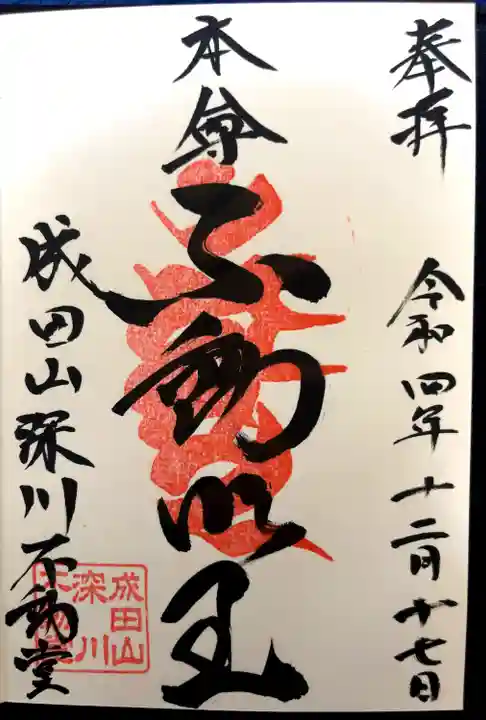 奉拝
令和四年十二月十七日
本尊
不動明王
成田山深川不動堂
成田山
深川
不動堂